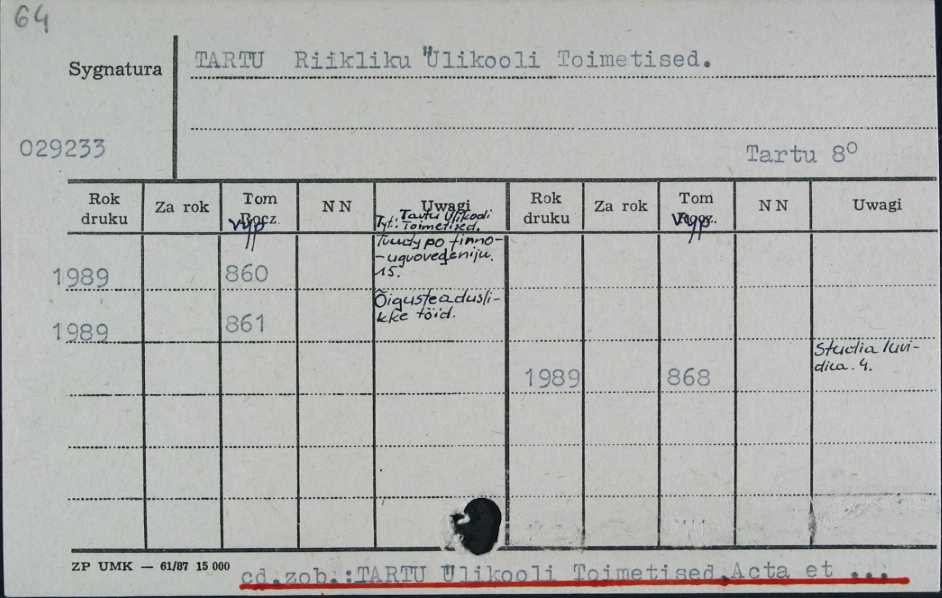 64
Sygnatura
TARTU Riikliku Ülikooli Toimetised.
029233
Tartu 8°
Rok druku Za rok Tom Rocz. NN Uwagi Rok druku Za rok Tom Rocz. NN Uwagi
Vyp Vyp
Tyt.: Tartu Ülikooli
Toimetised.
Trudy po finno-
-ugrovedeniju.
15.
1989 860
Õigusteadusli-
kke töid.
1989 861
Studia Iuri-
dica. 4.
1989 868
ZP UMK — 61/87 15 000
cd.zob.:TARTU Ülikooli Toimetised.Acta et ...